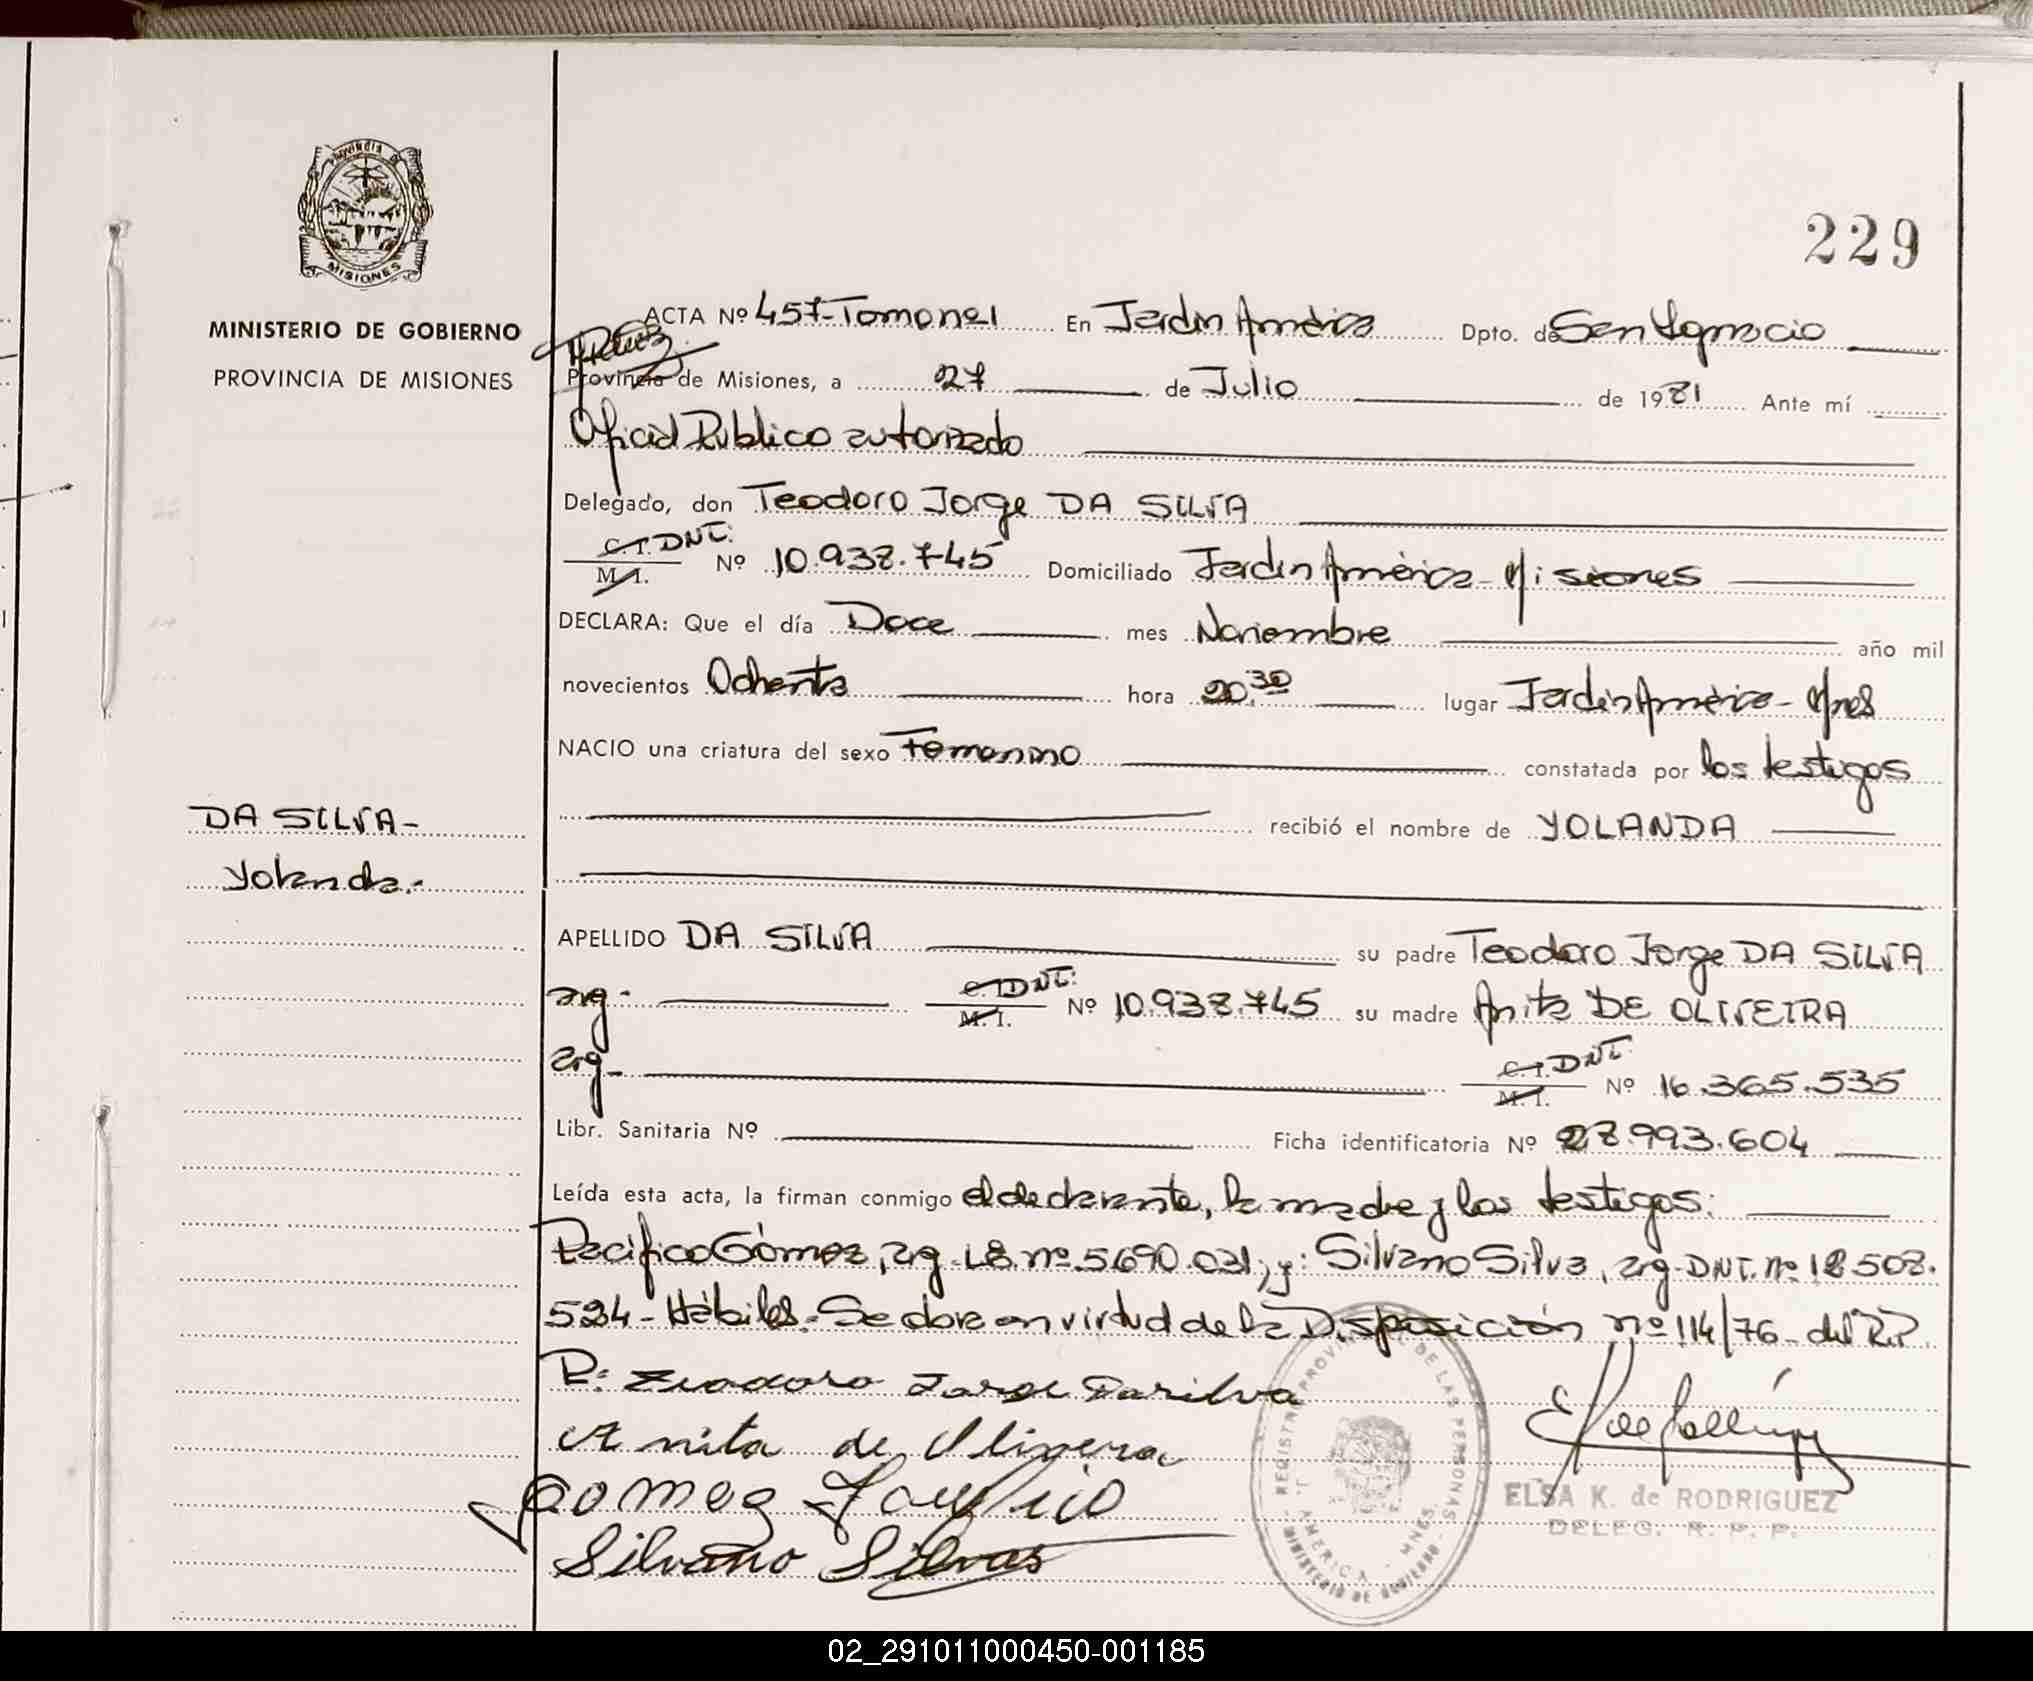 Provincia de
MISIONES
MINISTERIO DE GOBIERNO
PROVINCIA DE MISIONES
229
ACTA Nº 457-Tomo nº1 En Jardín América Dpto. de San Ignacio
Provincia de Misiones, a 27 de Julio de 1981 Ante mí
Oficial Público autorizado
Delegado, don Teodoro Jorge DA SILVA
C.I. DNI. M.I. Nº 10.938.745 Domiciliado Jardín América - Misiones
DECLARA: Que el día Doce mes Noviembre año mil
novecientos Ochenta hora 20,30 lugar Jardín América - Mnes
NACIO una criatura del sexo Femenino constatada por los testigos
recibió el nombre de YOLANDA
DA SILVA-
Yolanda.-
APELLIDO DA SILVA su padre Teodoro Jorge DA SILVA
arg. C.I. DNI. M.I. Nº 10.938.745 su madre Anita DE OLIVEIRA
arg- C.I. DNI M.I. Nº 16.365.535
Libr. Sanitaria Nº Ficha identificatoria Nº 28.993.604
Leída esta acta, la firman conmigo el declarante, la madre y los testigos:
Pacífico Gómez, arg. LE. nº 5.690.031, y: Silvano Silva, arg. DNI. nº 18.508.
534- Hábiles.- Se labra en virtud de la Disposición nº 114/76- del R.P.
P: Teodoro Jorge Dasilva
Anita de Olivera
Gomez Pacifico
Silvano Silvas
REGISTRO PROVINCIAL DE LAS PERSONAS
J. AMERICA - MNES.
MINISTERIO DE GOBIERNO
ELSA K. de RODRIGUEZ
DELEG. R. P. P.
02_291011000450-001185